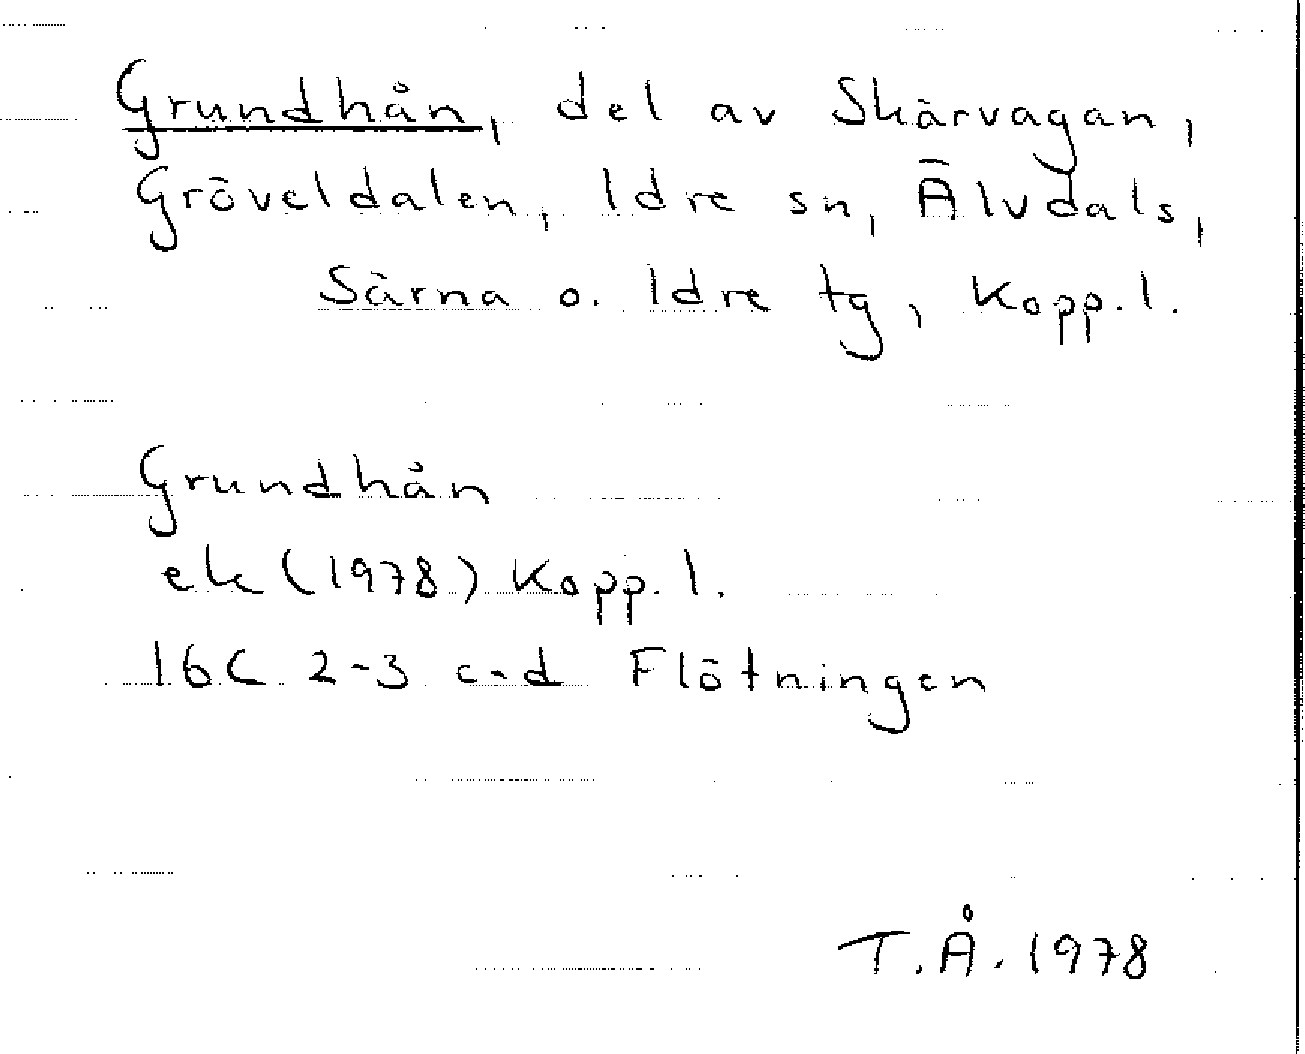 Grundhån, del av Skärvagan,
Gröveldalen, Idre sn, Älvdals,
Särna o. Idre tg, Kopp.l.
Grundhån
ek (1978) Kopp.l.
16C 2-3 c-d Flötningen
T.Å. 1978